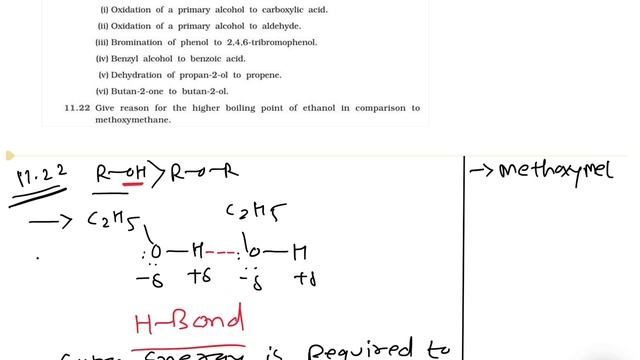 (i) Oxidation of a primary alcohol to carboxylic acid.
(ii) Oxidation of a primary alcohol to aldehyde.
(iii) Bromination of phenol to 2,4,6-tribromophenol.
(iv) Benzyl alcohol to benzoic acid.
(v) Dehydration of propan-2-ol to propene.
(vi) Butan-2-one to butan-2-ol.
11.22 Give reason for the higher boiling point of ethanol in comparison to
methoxymethane.
11.22 R-OH > R-O-R
→ C2H5 C2H5
:O-H---:O-H
-δ +δ -δ +δ
H-Bond
Energy is Required to
→ methoxymet